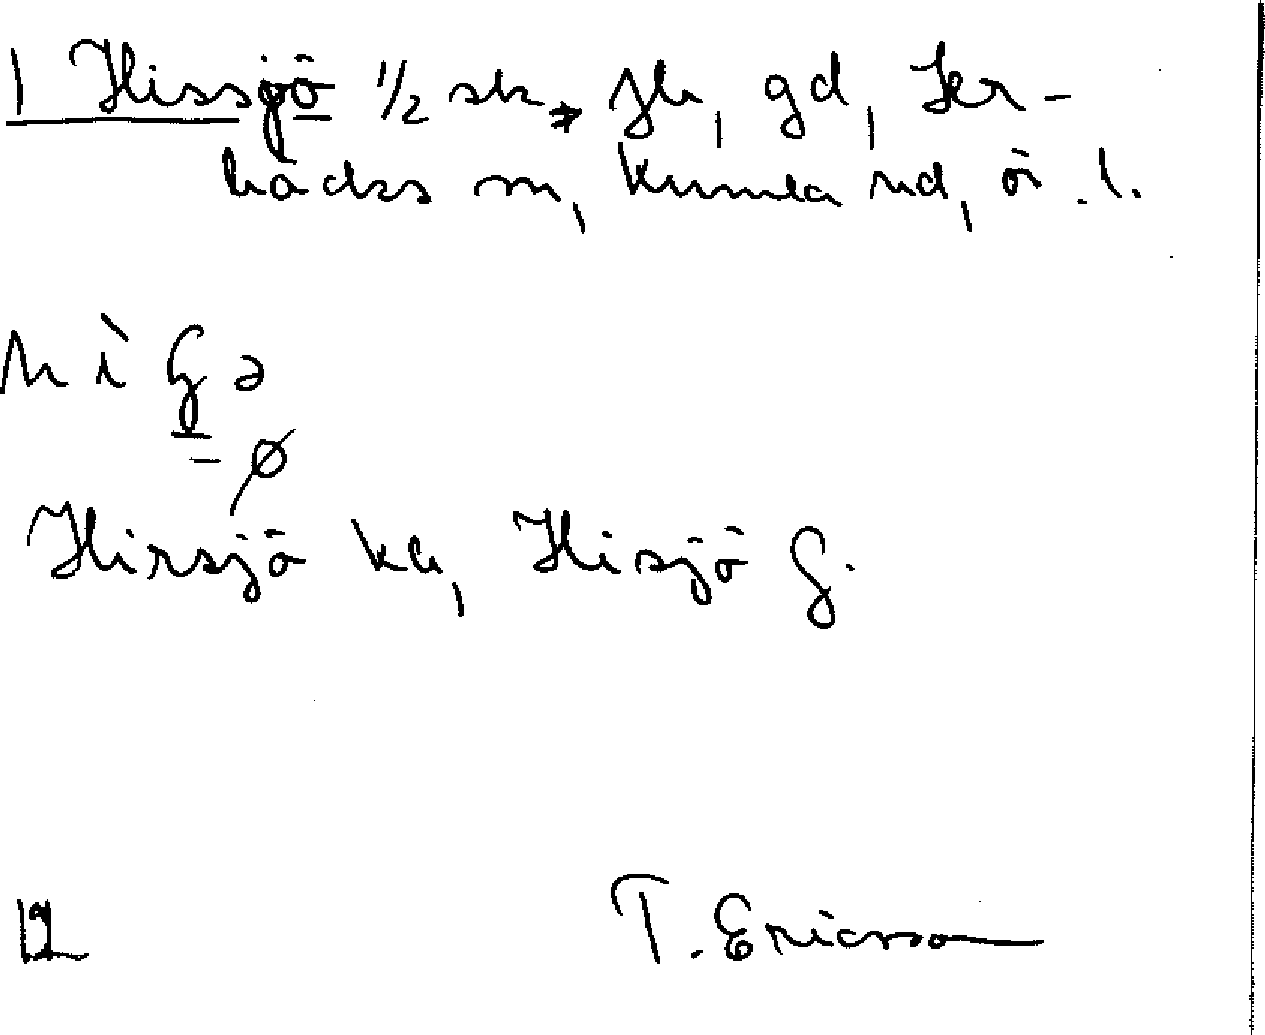 1 Hissjö 1/2 sk, fk, gd, Ker-
backs sn, Kumla hd, ör. l.
hìʃə
- ø
Hirsjö ka, Hisjö G.
12
T. Ericsson